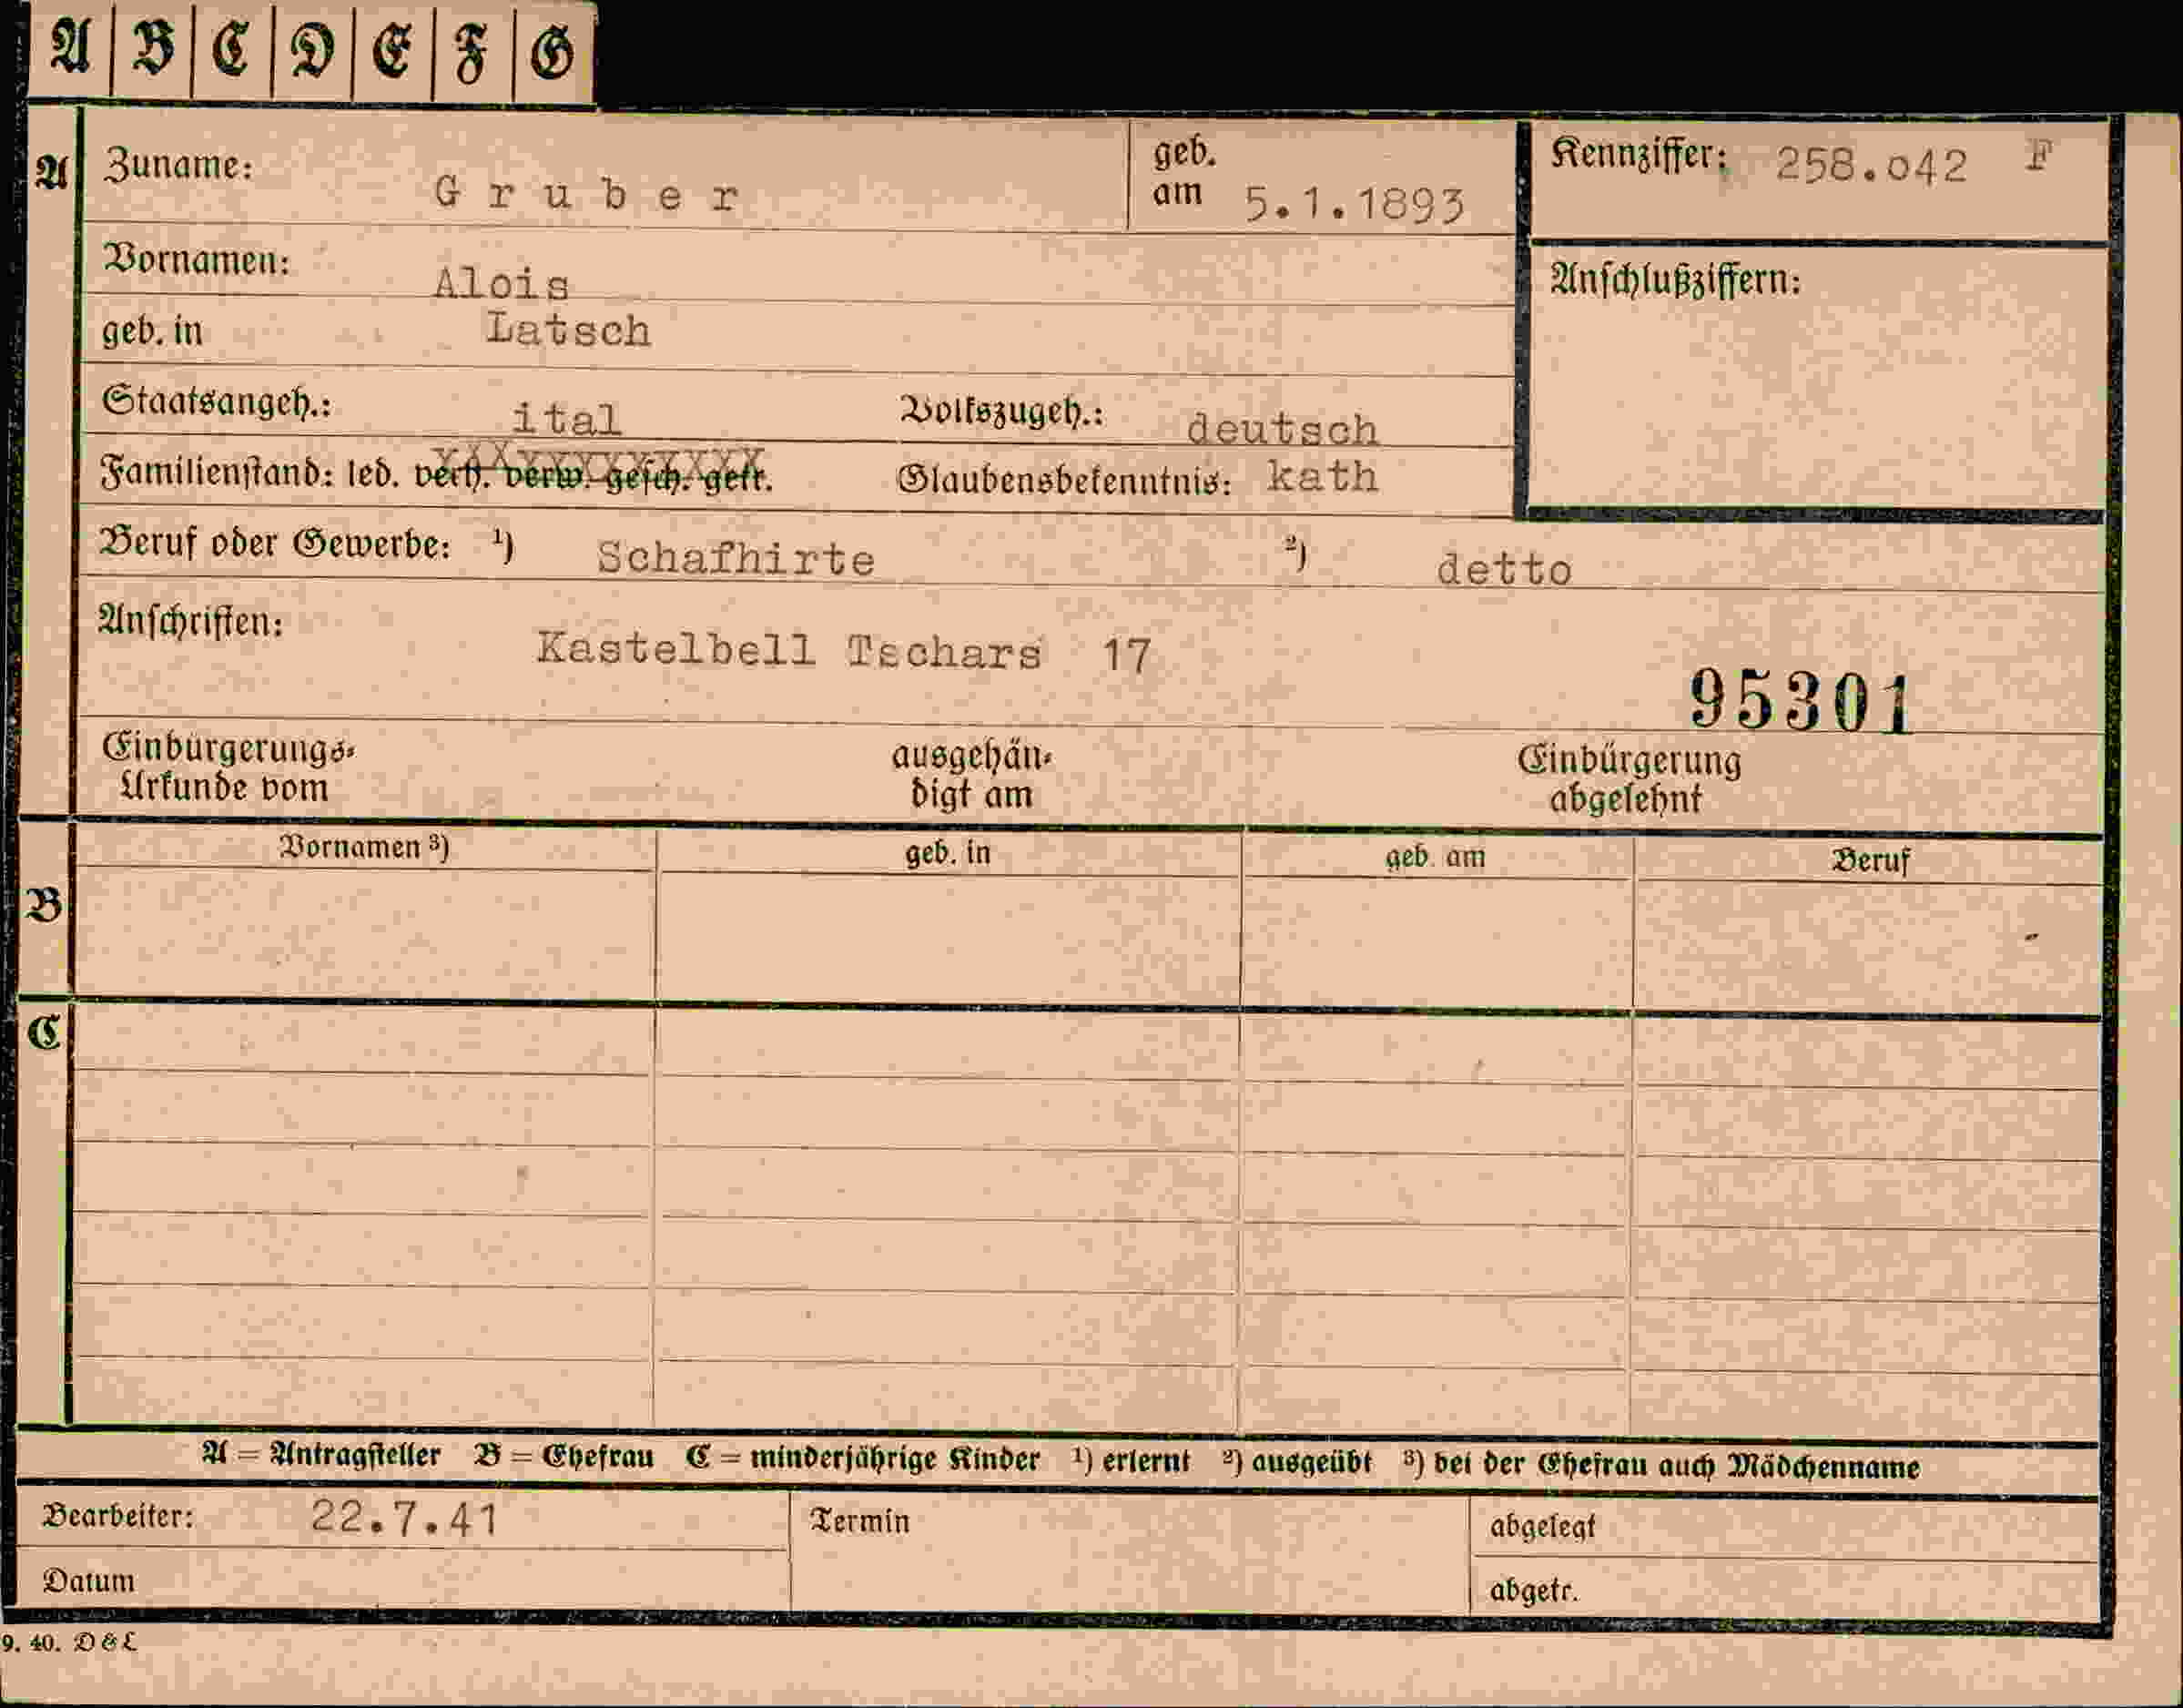 A B C D E F G
A Zuname: Gruber geb. am 5.1.1893 Kennziffer: 258.042 F
Vornamen: Alois Anschlußziffern:
geb. in Latsch
Staatsangeh.: ital Volkszugeh.: deutsch
Familienstand: led. verh. verw. gesch. getr. Glaubensbekenntnis: kath
Beruf oder Gewerbe: ¹) Schafhirte ²) detto
Anschriften:
Kastelbell Tschars 17
95301
Einbürgerungs- ausgehän- Einbürgerung
Urkunde vom digt am abgelehnt
Vornamen ³) geb. in geb. am Beruf
B
C
A = Antragsteller B = Ehefrau C = minderjährige Kinder ¹) erlernt ²) ausgeübt ³) bei der Ehefrau auch Mädchenname
Bearbeiter: 22.7.41 Termin abgelegt
Datum abgetr.
9. 40. D & L